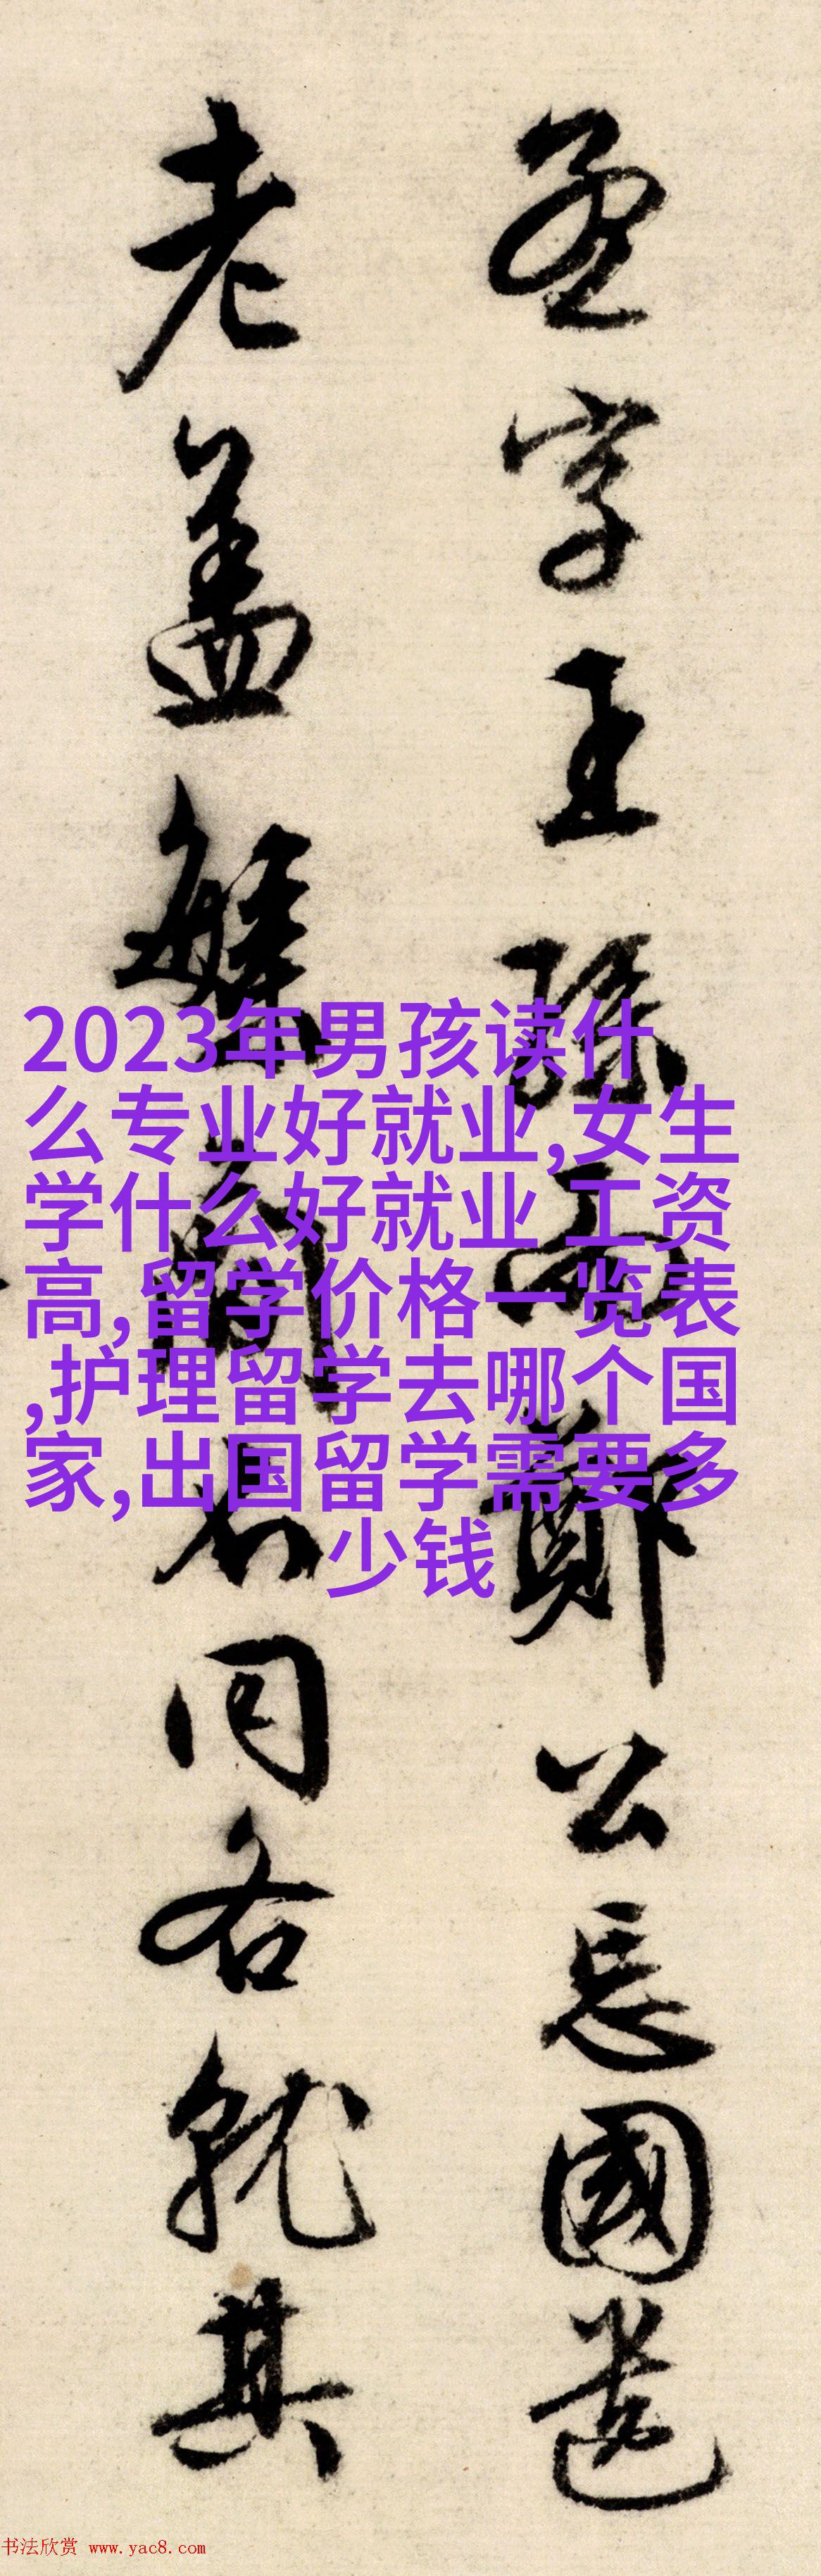 孟字王孫而鄭公忘國遺
老盖蟹
同名就其
2023年男孩读什
么专业好就业,女生
学什么好就业 工资
高,留学价格一览表
,护理留学去哪个国
家,出国留学需要多
少钱
书法欣赏 www.yac8.com